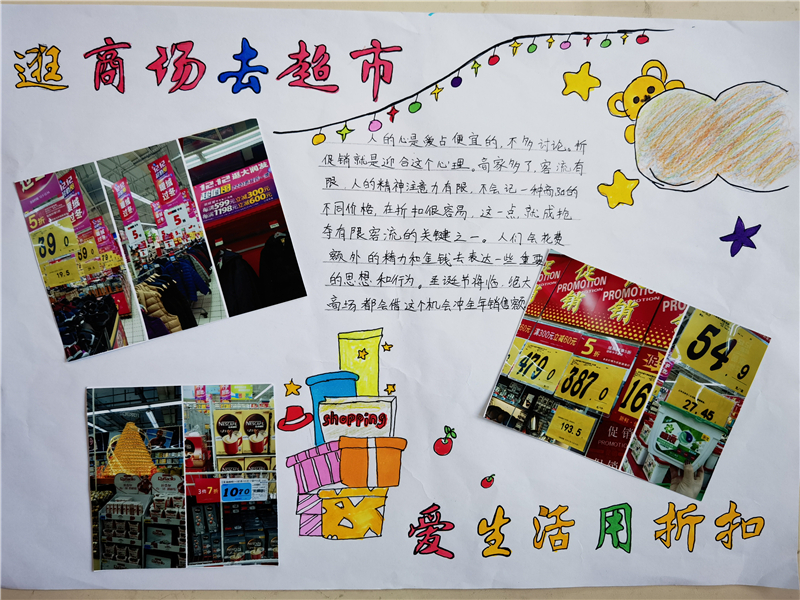 逛商场去超市
人的心是爱占便宜的,不多讨论。折
促销就是迎合这个心理。商家多了,客流有
限,人的精神注意力有限,不会记一种商品的
不同价格,在折扣很容易,这一点,就成抢
夺有限客流的关键之一。人们会花费
额外的精力和金钱去表达一些重要
的思想和行为。圣诞节将临,绝大
商场都会借这个机会冲全年销售额
5折
39 0
19.5
12.12
满599元立减300元
满1198元立减600元
促销
PROMOTION
PROMOTION
满300元立减60元
5折
479 0
387 0
193.5
促销
PROMOTION
54 9
27.45
NESCAFÉ
3件7折
shopping
爱生活用折扣